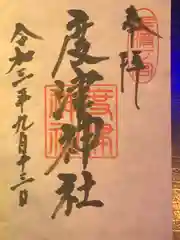 奉拝
度津神社
令和三年九月十三日